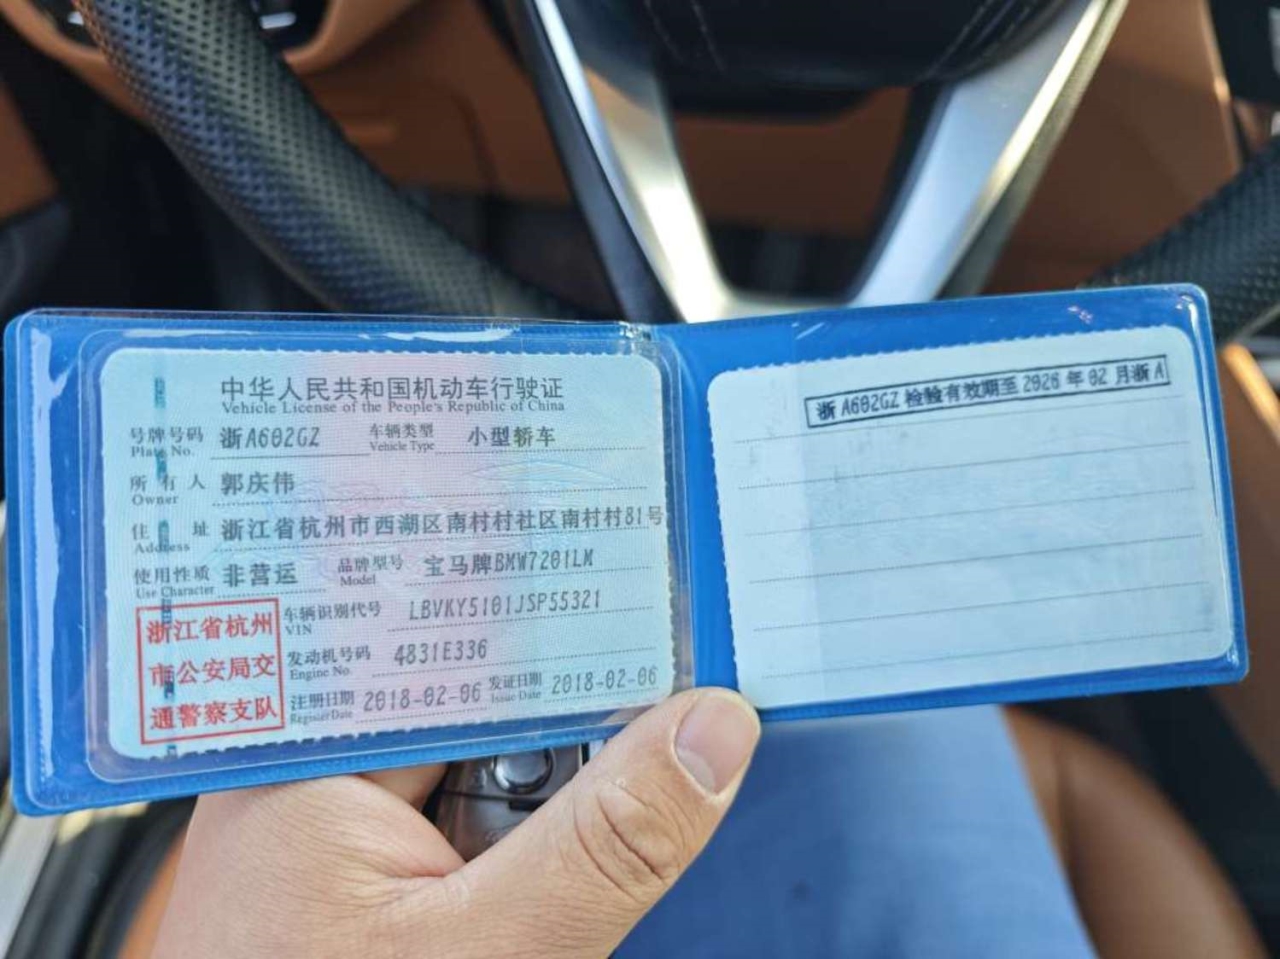 中华人民共和国机动车行驶证
Vehicle License of the People's Republic of China
号牌号码 浙A602GZ 车辆类型 小型轿车
Plate No. Vehicle Type
所有人 郭庆伟
Owner
住址 浙江省杭州市西湖区南村村社区南村村81号
Address
使用性质 非营运 品牌型号 宝马牌BMW7201LM
Use Character Model
车辆识别代号 LBVKY5101JSP55321
VIN
发动机号码 4831E336
Engine No.
注册日期 2018-02-06 发证日期 2018-02-06
Register Date Issue Date
浙江省杭州
市公安局交
通警察支队
浙A602GZ 检验有效期至 2026 年 02 月浙A